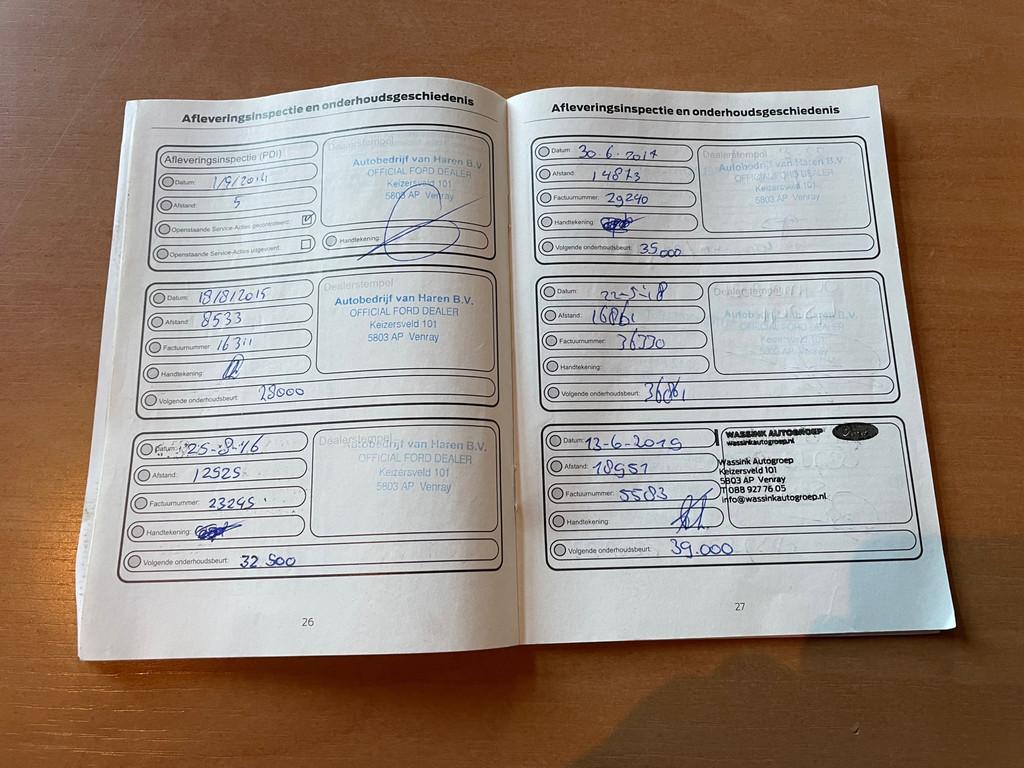 Afleveringsinspectie en onderhoudsgeschiedenis
Afleveringsinspectie (PDI)
Datum: 1/9/2014
Afstand: 5
Openstaande Service-Acties gecontroleerd:
Openstaande Service-Acties uitgevoerd:
Dealerstempel
Autobedrijf van Haren B.V.
OFFICIAL FORD DEALER
Keizersveld 101
5803 AP Venray
Handtekening:
Datum: 18/8/2015
Afstand: 8533
Factuurnummer: 16311
Handtekening:
Dealerstempel
Autobedrijf van Haren B.V.
OFFICIAL FORD DEALER
Keizersveld 101
5803 AP Venray
Volgende onderhoudsbeurt: 28000
Datum: 25-8-16
Afstand: 12525
Factuurnummer: 23245
Handtekening:
Dealerstempel
Autobedrijf van Haren B.V.
OFFICIAL FORD DEALER
Keizersveld 101
5803 AP Venray
Volgende onderhoudsbeurt: 32.500
26
Afleveringsinspectie en onderhoudsgeschiedenis
Datum: 30-6-2017
Afstand: 14873
Factuurnummer: 29240
Handtekening:
Dealerstempel
Autobedrijf van Haren B.V.
OFFICIAL FORD DEALER
Keizersveld 101
5803 AP Venray
Volgende onderhoudsbeurt: 35000
Datum: 22-5-18
Afstand: 16861
Factuurnummer: 36770
Handtekening:
Dealerstempel
Autobedrijf van Haren B.V.
OFFICIAL FORD DEALER
Keizersveld 101
5803 AP Venray
Volgende onderhoudsbeurt: 36861
Datum: 13-6-2019
Afstand: 18951
Factuurnummer: 5583
Handtekening:
WASSINK AUTOGROEP
wassinkautogroep.nl
Ford
Wassink Autogroep
Keizersveld 101
5803 AP Venray
T 088 927 76 05
info@wassinkautogroep.nl
Volgende onderhoudsbeurt: 39.000
27